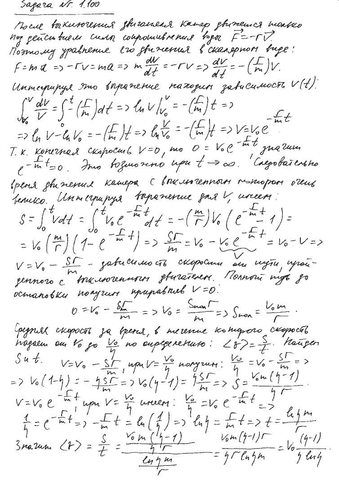 Задача № 1.100
После выключения двигателя катер движется только
под действием силы сопротивления воды F⃗=-rV⃗.
Поэтому уравнение его движения в скалярном виде:
F=ma ⇒ -rV=ma ⇒ m dV/dt = -rV ⇒ dV/dt = -(r/m)V.
Интегрируя это выражение находим зависимость V(t):
∫_{V₀}^{V} dV/V = ∫_0^t -(r/m)dt ⇒ ln V|_{V₀}^{V} = -(r/m)t ⇒
⇒ ln V - ln V₀ = -(r/m)t ⇒ ln V/V₀ = -(r/m)t ⇒ V=V₀e^{-r/m t}
Т.к. конечная скорость V=0, то 0=V₀e^{-r/m t} значит
e^{-r/m t}=0. Это возможно при t→∞. Следовательно
время движения катера с выключенным мотором очень
велико. Интегрируя выражение для V, имеем:
S=∫_0^t Vdt = ∫_0^t V₀e^{-r/m t}dt = -(m/r)V₀(e^{-r/m t}-1) =
= V₀(m/r)(1-e^{-r/m t}) ⇒ Sr/m = V₀-V₀e^{-r/m t} = V₀-V ⇒
V=V₀-Sr/m - зависимость скорости от пути пройденного
с выключенным двигателем. Полный путь до
остановки получим приравняв V=0:
0=V₀-Sr/m ⇒ V₀=S_{max}r/m ⇒ S_{max}=V₀m/r.
Средняя скорость за время, в течение которого скорость
падает от V₀ до V₀/η по определению: <V>=S/t. Найдем
S и t. V=V₀-Sr/m, при V=V₀/η получим: V₀/η=V₀-Sr/m ⇒
⇒ V₀(1-η)=-ηSr/m ⇒ V₀(η-1)=ηSr/m ⇒ S=V₀m(η-1)/ηr
V=V₀e^{-r/m t}, при V=V₀/η имеем: V₀/η=V₀e^{-r/m t} ⇒
1/η=e^{-r/m t} ⇒ -r/m t=ln(1/η) ⇒ ln η=r/m t ⇒ t=ln η m/r
Значит <V>=S/t=(V₀m(η-1)/ηr)/(ln η m/r)=V₀m(η-1)r/ηr ln η m=V₀(η-1)/η ln η